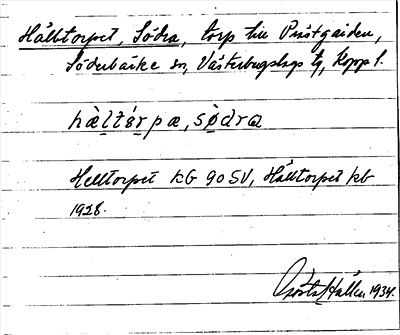 Hälltorpet, Södra, torp till Prästgården,
Söderbärke sn, Västerbergslags tg, Kopp l.
hæ̀ltɷ́rpæ, sø̀dra
Helltorpet kG 90 SV, Hälltorpet kb
1928.
Gösta Hallen 1934.